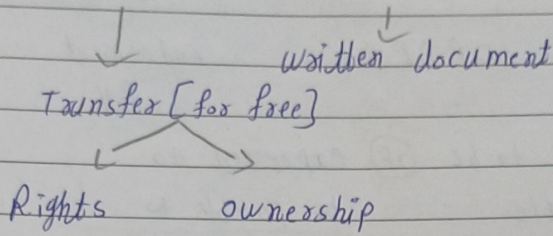 written document
Transfer [for free]
Rights ownership